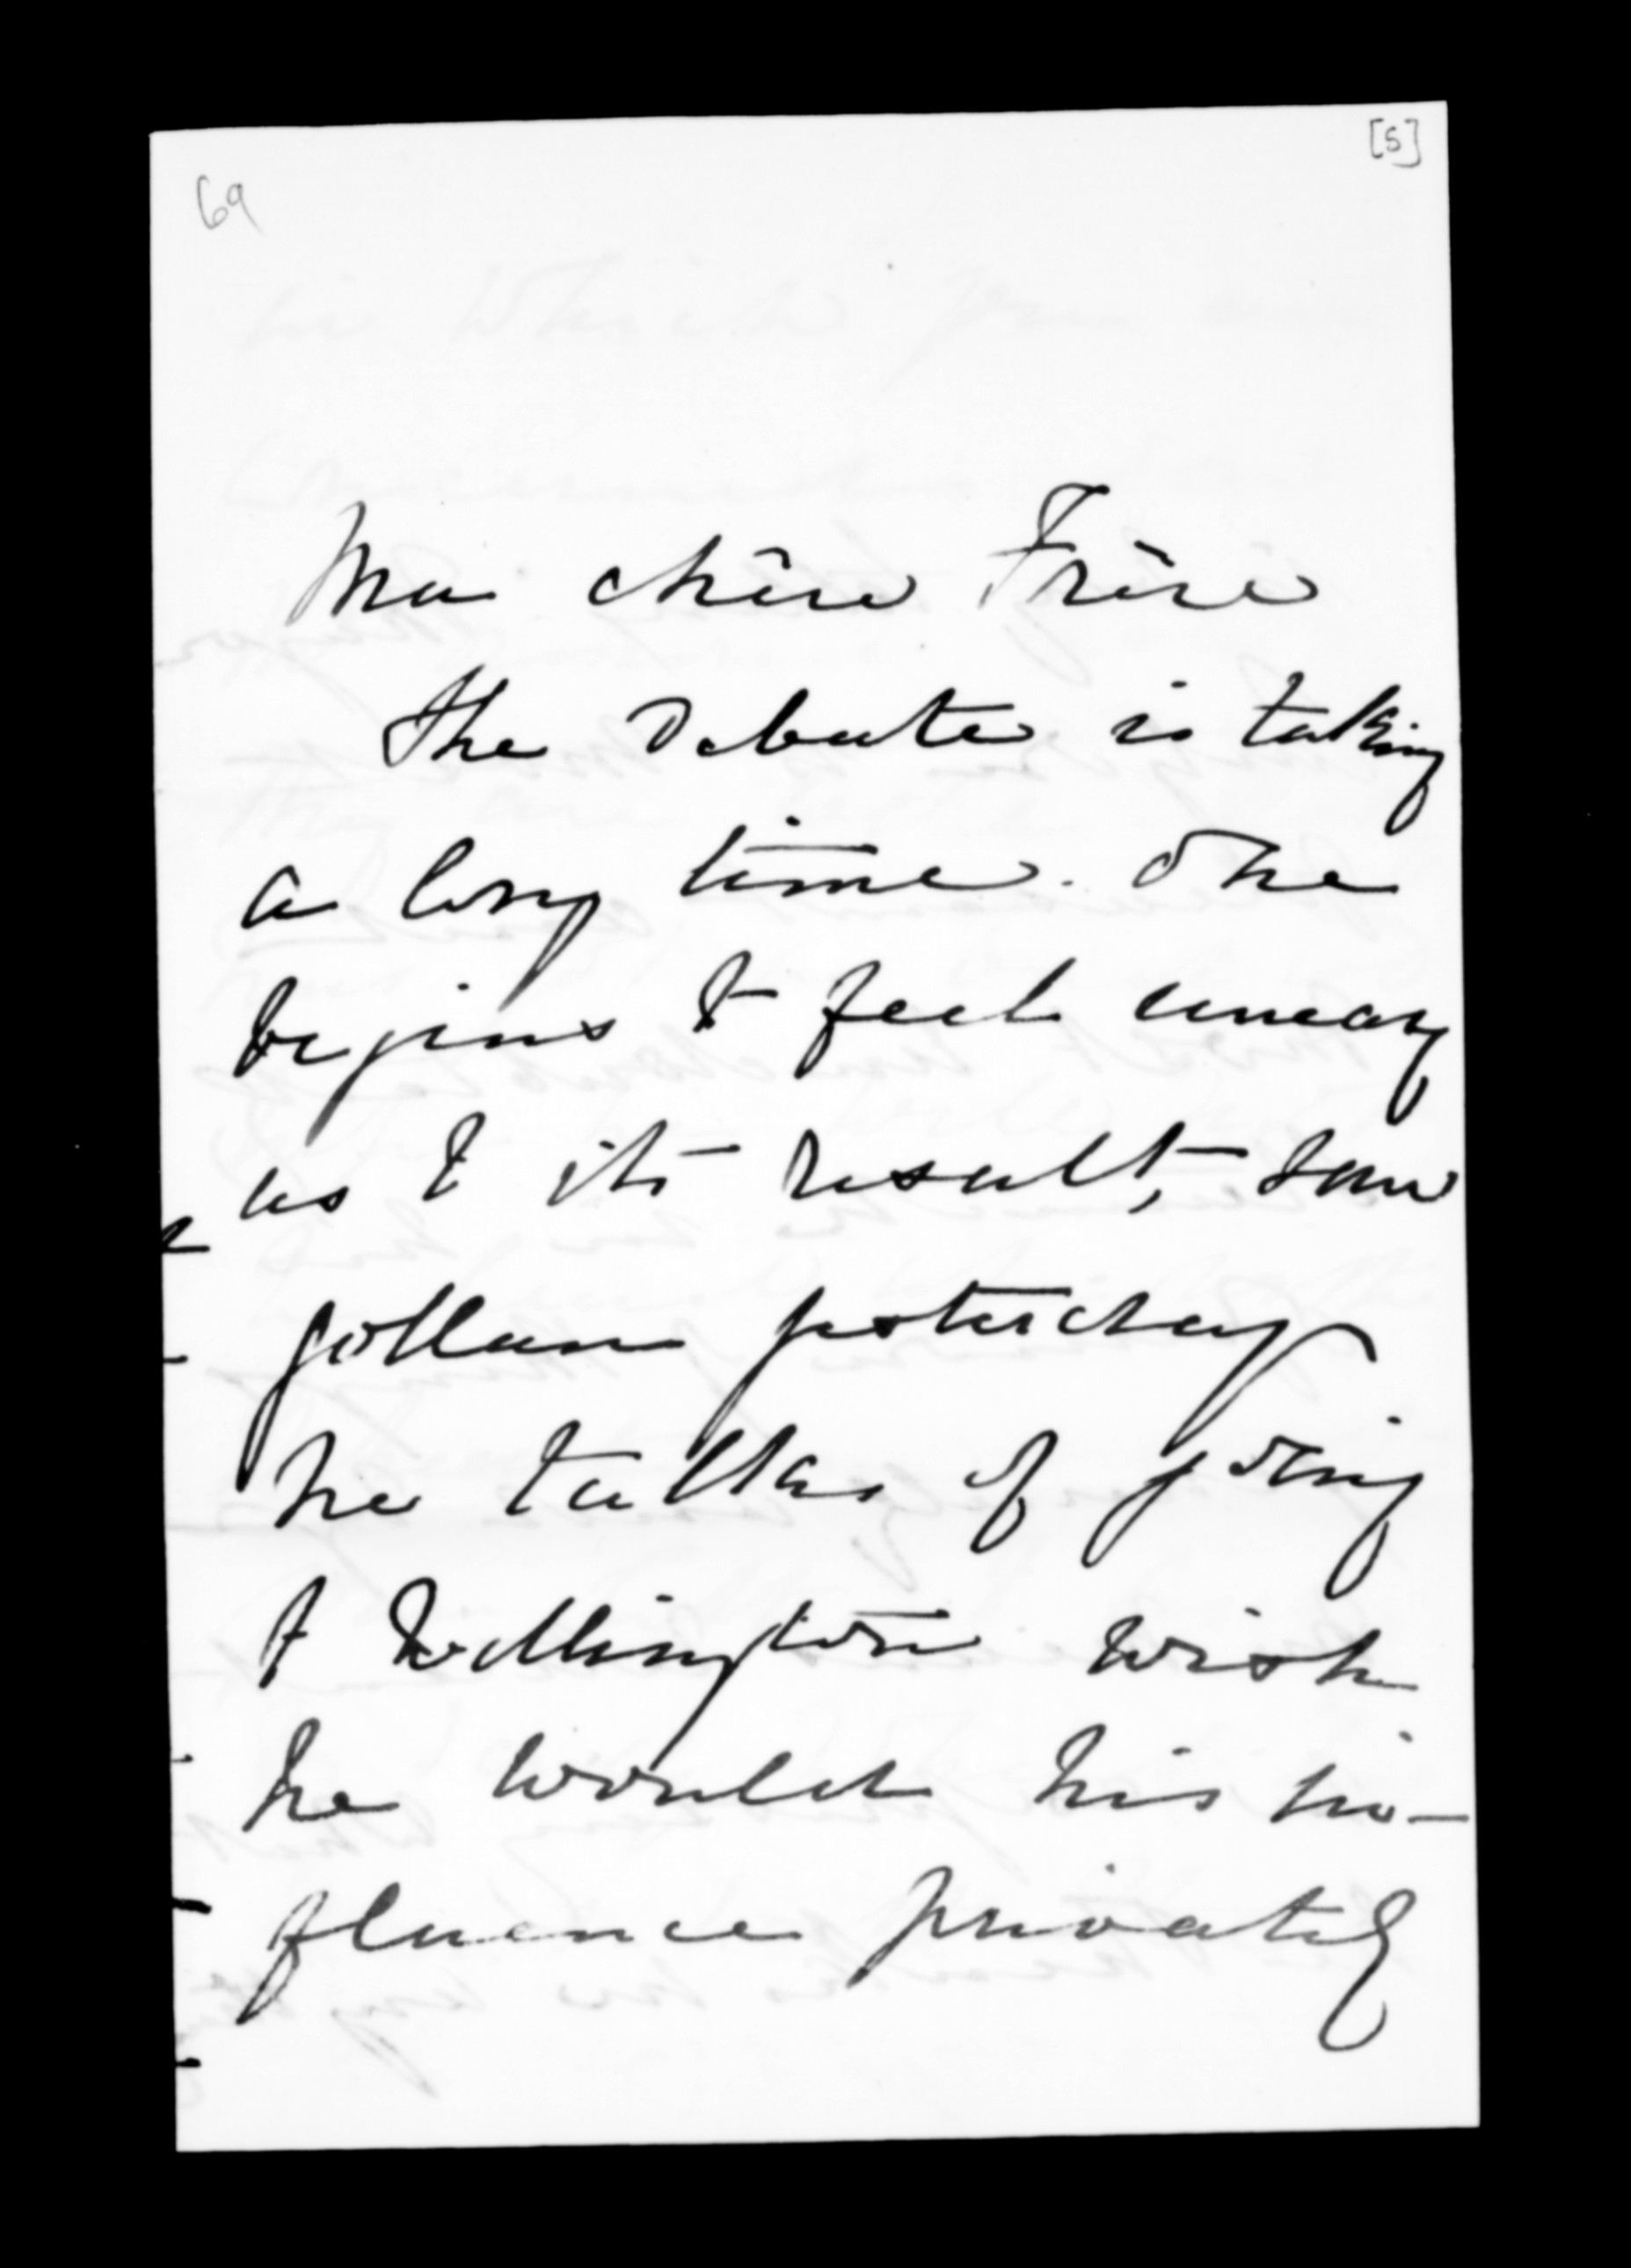 [5]
69
Mon chère Frère
The Debate is taking
a long time. One
begins to feel uneasy
as to its result, saw
Gollan yesterday
he talks of going
to Wellington wish
he would his in-
fluence privately